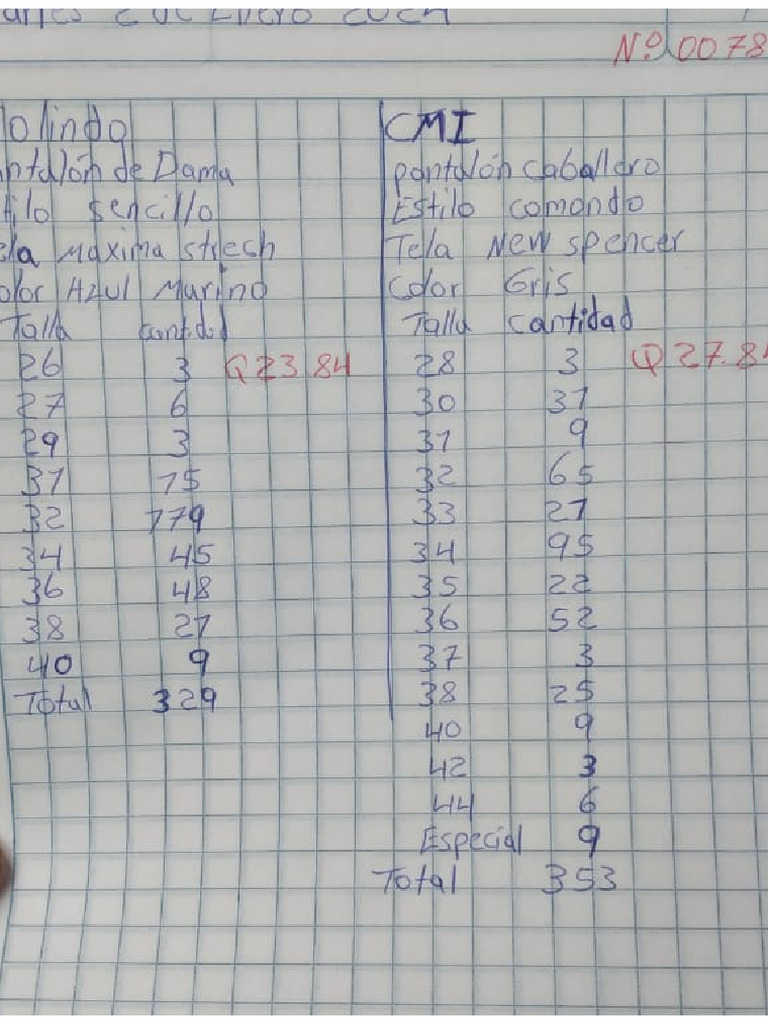 Nº 0078
olindo
ntalón de Dama
tilo sencillo
ela maxima strech
olor Azul Marino
Talla cantidad
26 3 Q 23.84
27 6
29 3
31 15
32 179
34 45
36 48
38 21
40 9
Total 329
CMI
pantalón caballero
Estilo comando
Tela New spencer
color Gris
Talla cantidad
28 3 Q 27.84
30 31
31 9
32 65
33 21
34 95
35 22
36 52
37 3
38 25
40 9
42 3
44 6
Especial 9
Total 353